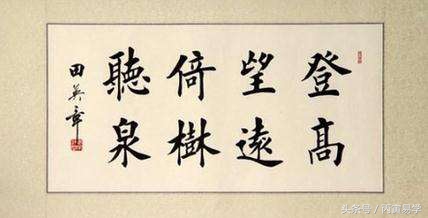 登高
望遠
倚樹
聽泉
田英章
头条号/丙寅易学